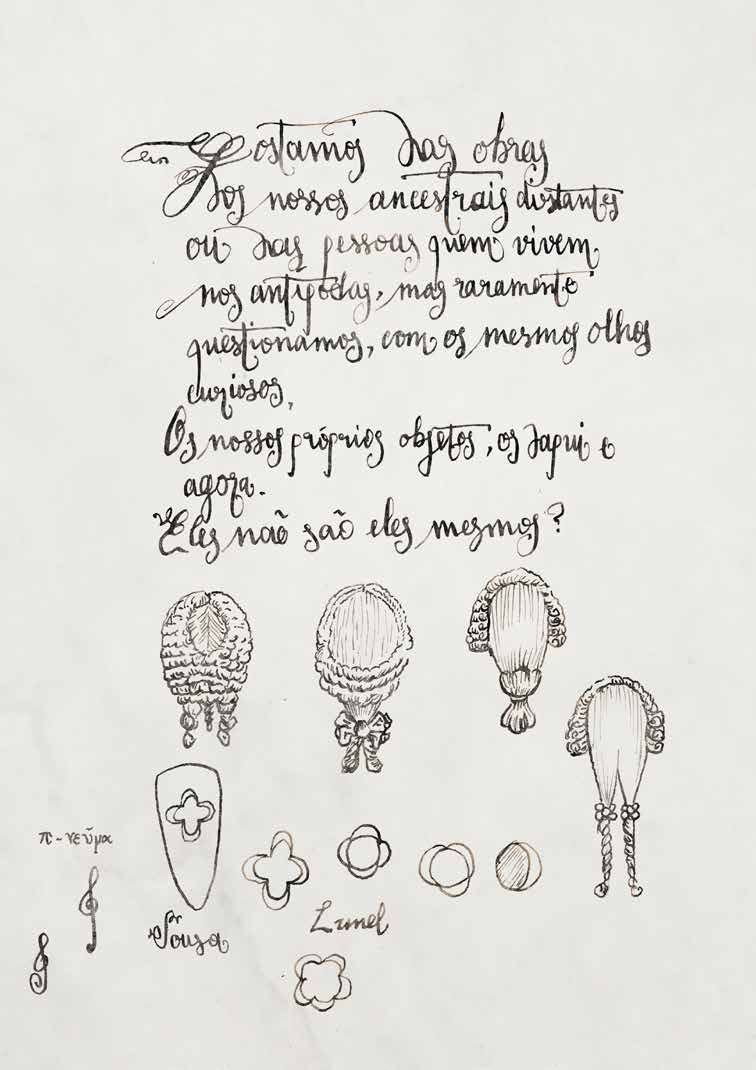 Gostamos das obras
Dos nossos ancestrais distantes
ou das pessoas quem vivem
nos antípodas, mas raramente
questionamos, com os mesmos olhos
curiosos,
Os nossos próprios objetos, os daqui e
agora.
Eles não são eles mesmos?
π-νεῦμα
Sousa
Lunel